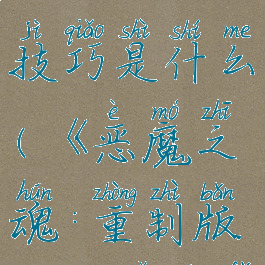 jì qiǎo shì shí me
技巧是什么
è mó zhī
（《恶魔之
hún zhòng zhì bǎn
魂：重制版